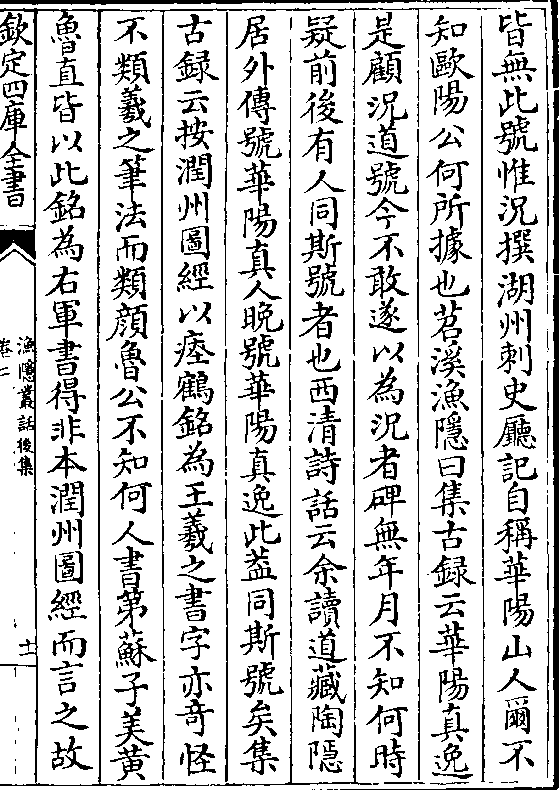 皆無此號惟況撰湖州刺史廳記自稱華陽山人爾不
知歐陽公何所據也苕溪漁隱曰集古録云華陽真逸
是顧況道號今不敢遂以為況者碑無年月不知何時
疑前後有人同斯號者也西清詩話云余讀道藏陶隱
居外傳號華陽真人晚號華陽真逸此葢同斯號矣集
古録云按潤州圖經以瘞鶴銘為王羲之書字亦奇怪
不類羲之筆法而類顔魯公不知何人書第蘇子美黄
魯直皆以此銘為右軍書得非本潤州圖經而言之故
欽定四庫全書
漁隱叢話後集
卷二
十